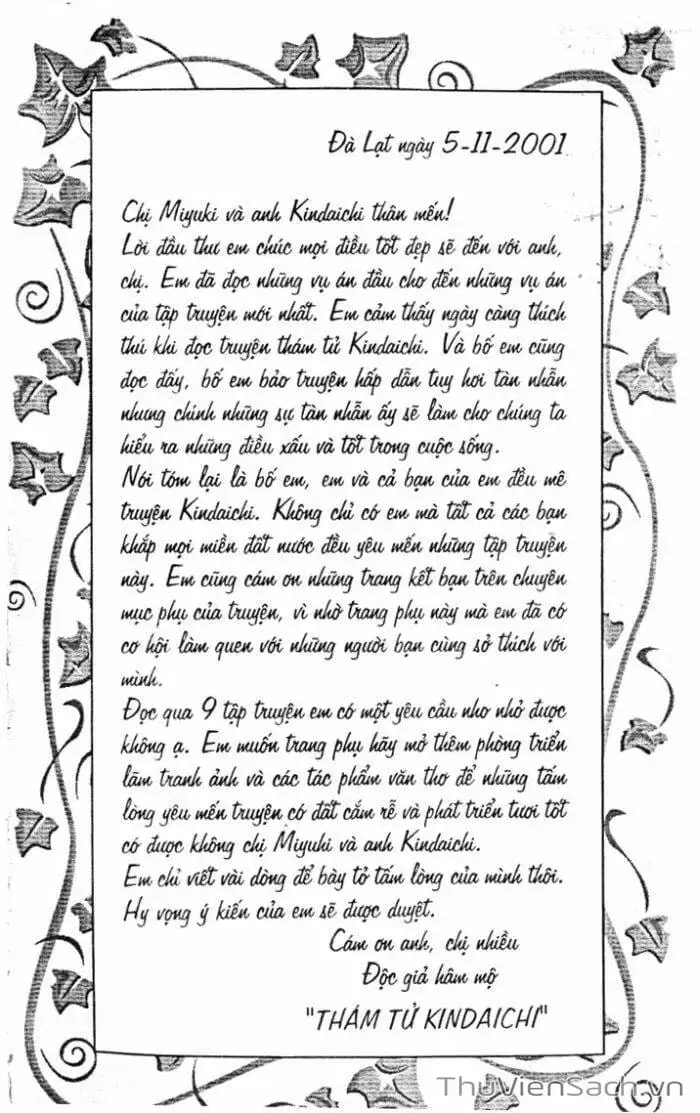 Đà Lạt ngày 5-11-2001
Chị Miyuki và anh Kindaichi thân mến!
Lời đầu thư em chúc mọi điều tốt đẹp sẽ đến với anh,
chị. Em đã đọc những vụ án đầu cho đến những vụ án
của tập truyện mới nhất. Em cảm thấy ngày càng thích
thú khi đọc truyện thám tử Kindaichi. Và bố em cũng
đọc đấy, bố em bảo truyện hấp dẫn tuy hơi tàn nhẫn
nhưng chính những sự tàn nhẫn ấy sẽ làm cho chúng ta
hiểu ra những điều xấu và tốt trong cuộc sống.
Nói tóm lại là bố em, em và cả bạn của em đều mê
truyện Kindaichi. Không chỉ có em mà tất cả các bạn
khắp mọi miền đất nước đều yêu mến những tập truyện
này. Em cũng cám ơn những trang kết bạn trên chuyên
mục phụ của truyện, vì nhờ trang phụ này mà em đã có
cơ hội làm quen với những người bạn cùng sở thích với
mình.
Đọc qua 9 tập truyện em có một yêu cầu nho nhỏ được
không ạ. Em muốn trang phụ hãy mở thêm phòng triển
lãm tranh ảnh và các tác phẩm văn thơ để những tấm
lòng yêu mến truyện có đất cắm rễ và phát triển tươi tốt
có được không chị Miyuki và anh Kindaichi.
Em chỉ viết vài dòng để bày tỏ tấm lòng của mình thôi.
Hy vọng ý kiến của em sẽ được duyệt.
Cám ơn anh, chị nhiều
Độc giả hâm mộ
"THÁM TỬ KINDAICHI"
ThuVienSach.vn